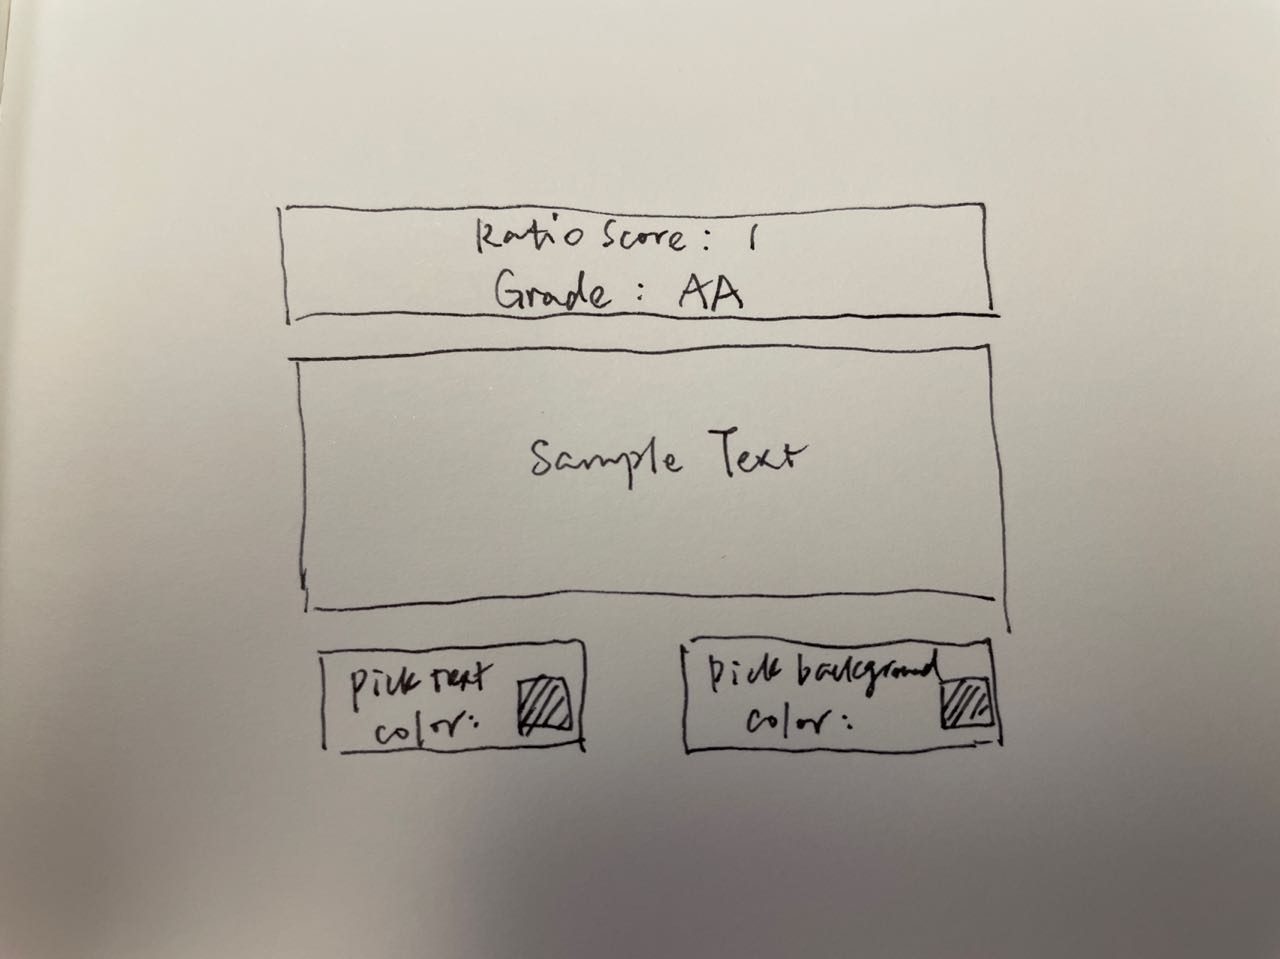 Ratio Score: 1
Grade: AA
Sample Text
pick text
color:
pick background
color: